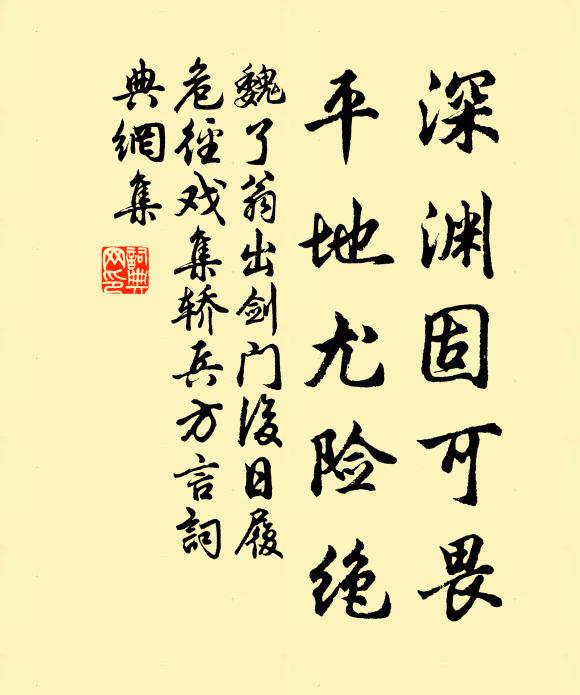 深渊固可畏
平地尤险绝
魏了翁出剑门后日履
危径戏集轿兵方言词
典網集
詞典
网印